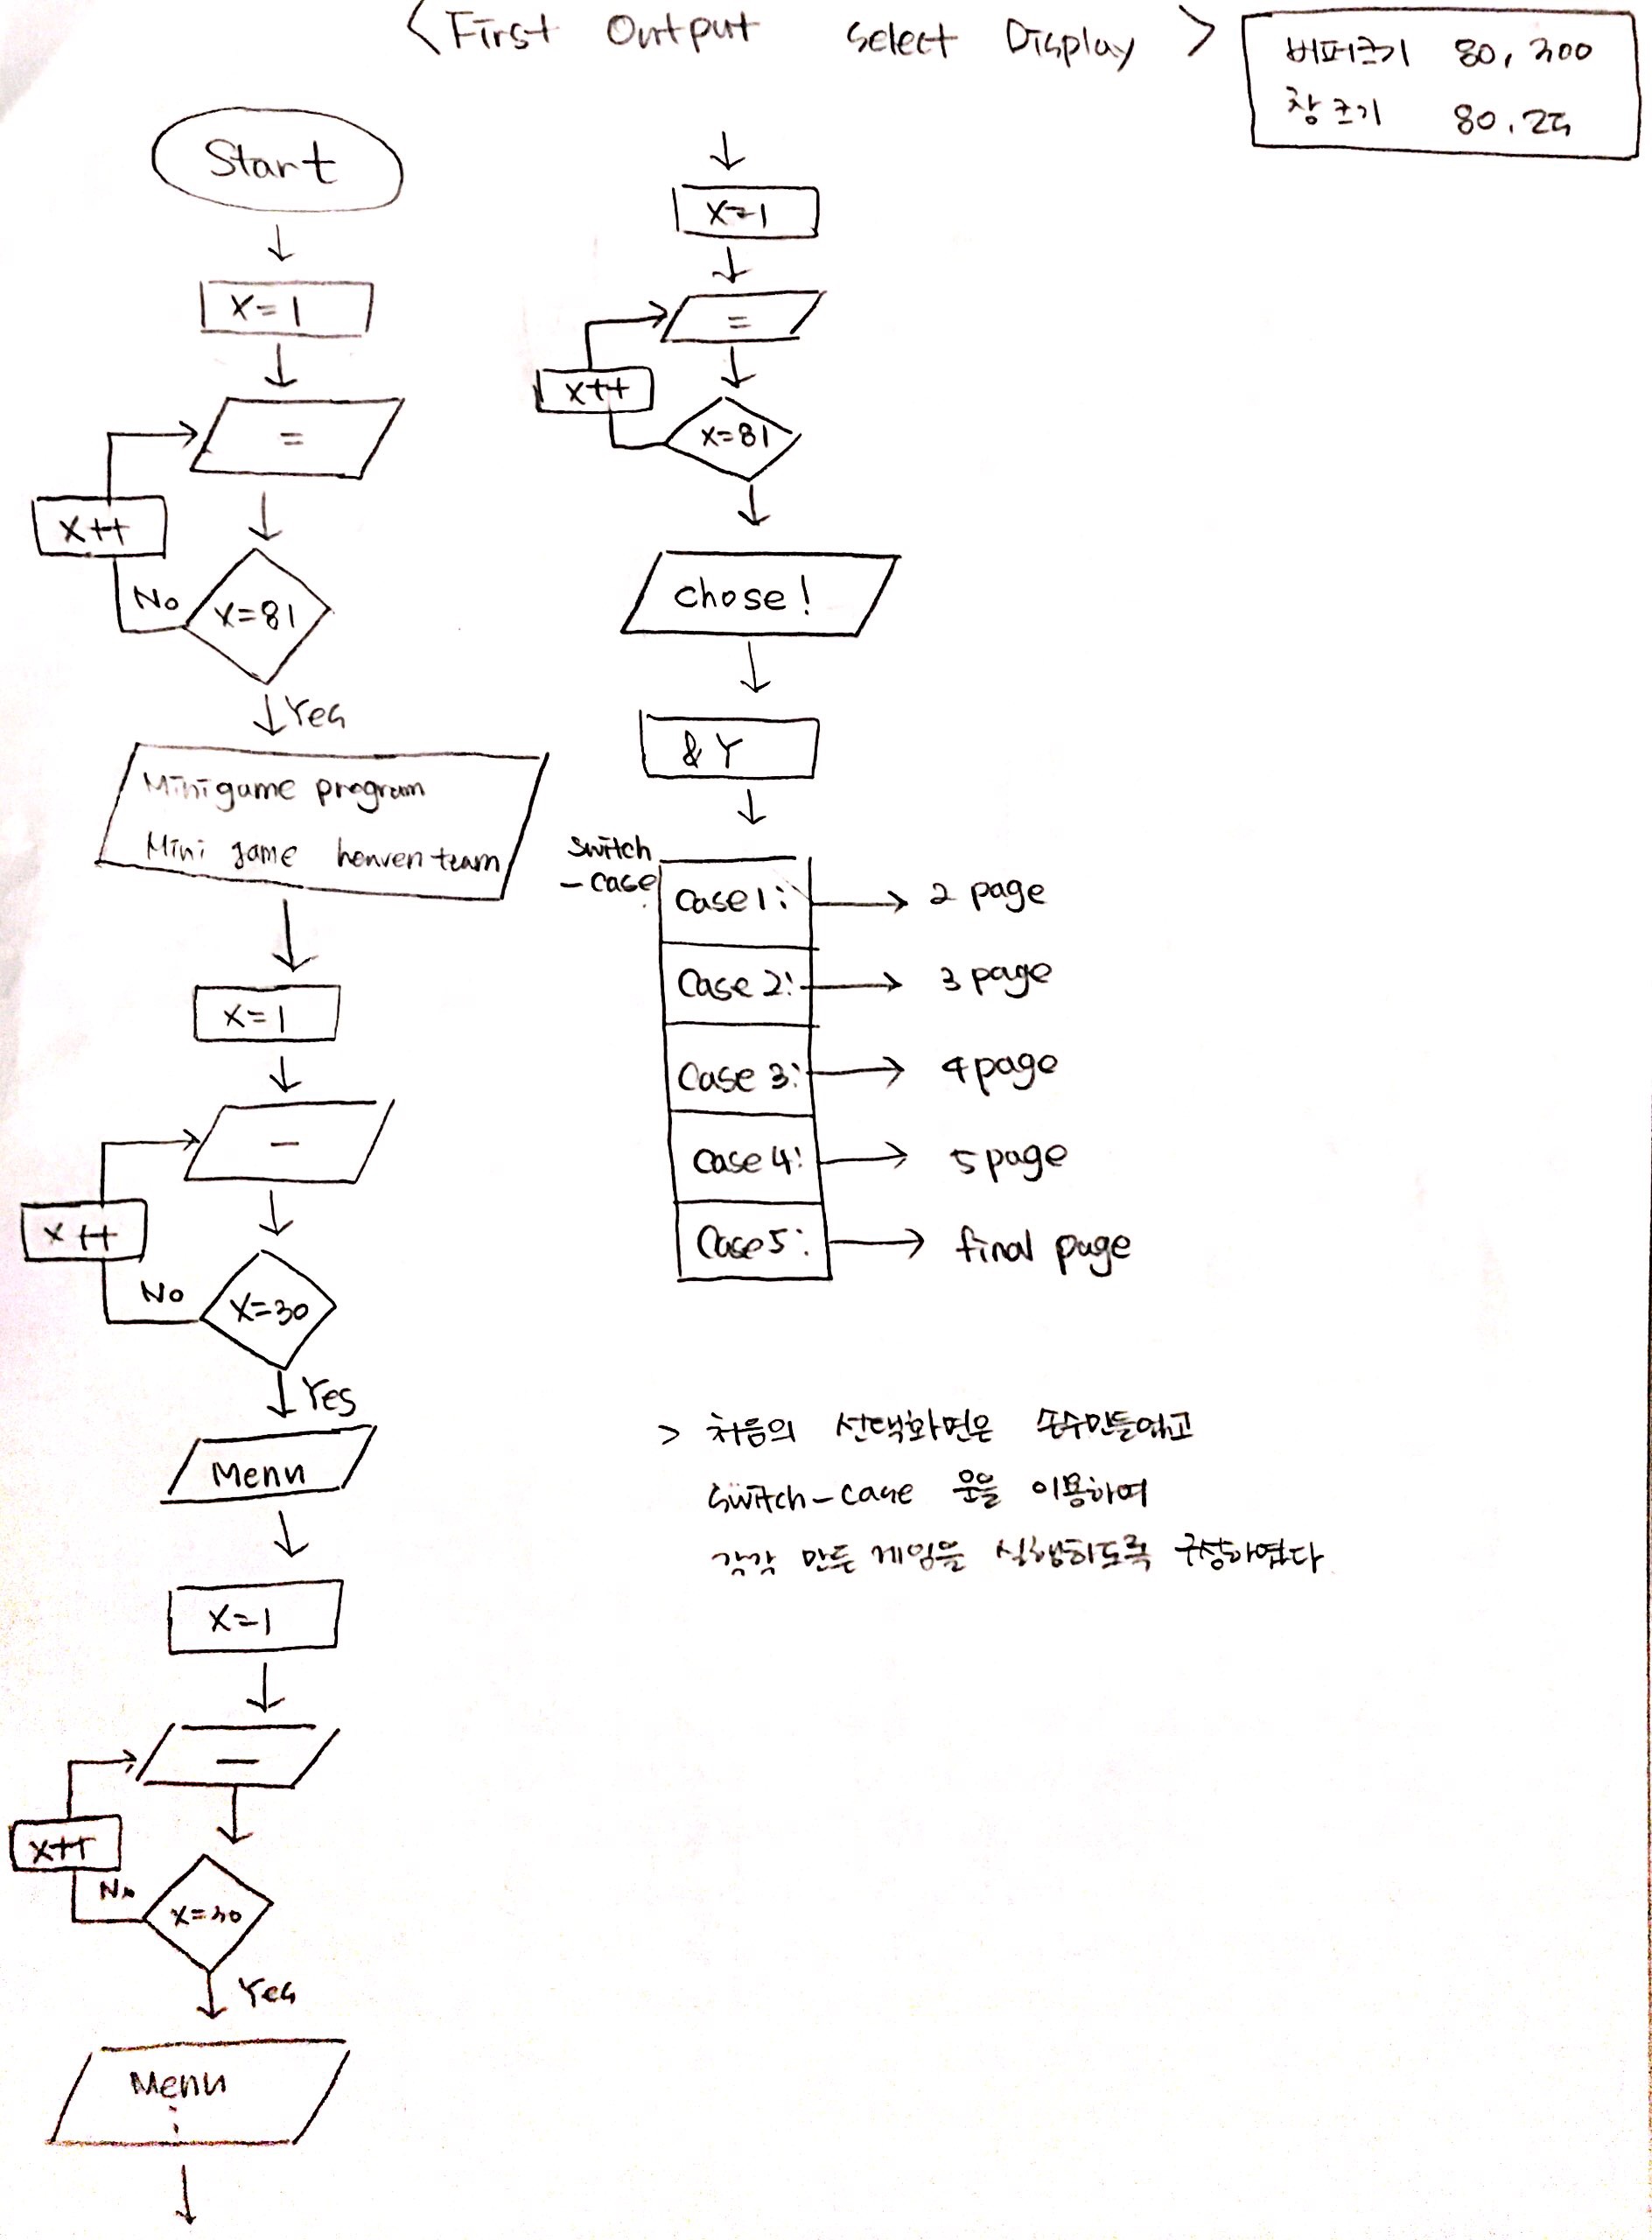 <First Output Select Display>
버퍼크기 80, 300
창크기 80.25
Start
X=1
=
X++
No
X=81
Yes
Minigame program
Mini game heaven team
X=1
-
X++
No
X=30
Yes
Menu
X=1
-
X++
No
X=30
Yes
Menu
X=1
=
X++
X=81
chose!
& Y
switch
-case
Case 1: → 2 page
Case 2: → 3 page
Case 3: → 4 page
Case 4: → 5 page
Case 5: → final page
> 처음의 선택화면은 손수만들었고
switch-case 문을 이용하여
각각 만든 게임을 실행하도록 구성하였다